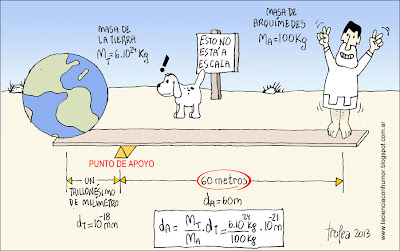 MASA DE
LA TIERRA
M_T=6.10²⁴Kg
!
ESTO NO
ESTÁ A
ESCALA
MASA DE
ARQUÍMEDES
M_A=100Kg
PUNTO DE APOYO
UN
TRILLONÉSIMO
DE MILÍMETRO
d_T=10⁻¹⁸mm
60 metros
d_A=60m
d_A = M_T/M_A . d_T = 6.10²⁴kg/100kg . 10⁻²¹m
trofea 2013
www.lacienciaconhumor.blogspot.com.ar